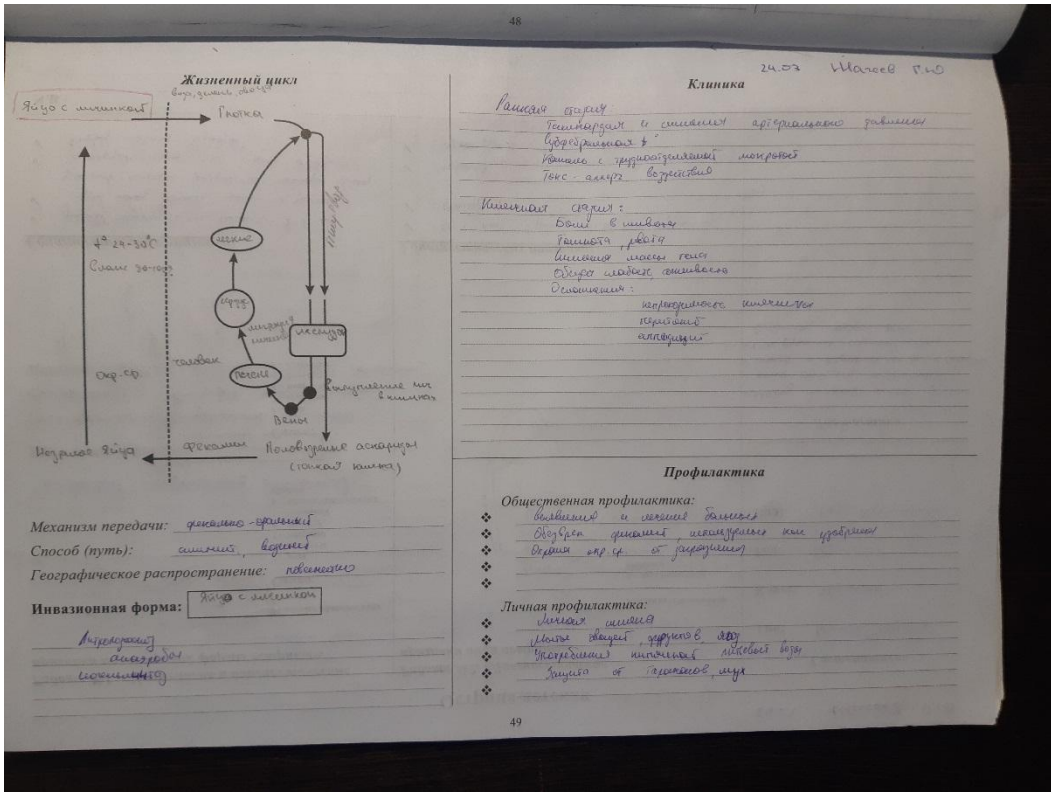 48
24.07
Жизненный цикл
вода, зелень, овощи
Яйцо с личинкой
Глотка
t° 24-30°C
легкие
сердце
миграция
человек
печень
окр. ср
кишечник
Вены
Незрелое яйцо
Фекалии
Половозрелые аскариды
(тонкой кишка)
Механизм передачи: фекально-оральный
Способ (путь): водный
Географическое распространение: повсеместно
Инвазионная форма: Яйцо с личинкой
Антропоноз
Клиника
Ранняя стадия
Тахикардия и снижения артериального давления
Субфебральная t°
Кашель с трудноотделяемой мокротой
Токс-аллерг воздействия
Кишечная стадия:
Боли в животе
Тошнота, рвота
Снижения массы тела
Общая слабость
Осложнения:
непроходимость кишечника
перитонит
аппендицит
Профилактика
Общественная профилактика:
❖ выявления и лечение больных
❖ Обезвреж фекалий, используемых как удобрения
❖ Охрана окр. ср. от загрязнения
❖
❖
Личная профилактика:
❖ Личная гигиена
❖ Мытье овощей, фруктов, ягод
❖ Употребления кипяченой питьевой воды
❖ Защита от тараканов, мух
❖
49